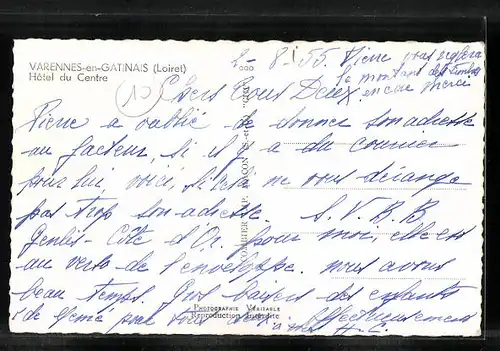 VARENNES-en-GATINAIS (Loiret)
Hôtel du Centre
2-8-55.
Pierre vous réglera
le montant des timbres
encore merci
Chers Tous Deux.
Pierre a oublié de donner son adresse
au facteur, si il y a du courrier
pour lui, voici, si cela ne vous dérange
pas trop son adresse. S.V.B.B
Genlis-Côte d'Or. pour moi, elle est
au verso de l'enveloppe. nous avons
beau temps. Gros baisers des enfants
de Gémé pour vous deux affectueusement
à mes H.C.
COMBIER IMP. MACON (S.-et-L.) "CIM"
PHOTOGRAPHIE VÉRITABLE
Reproduction Interdite